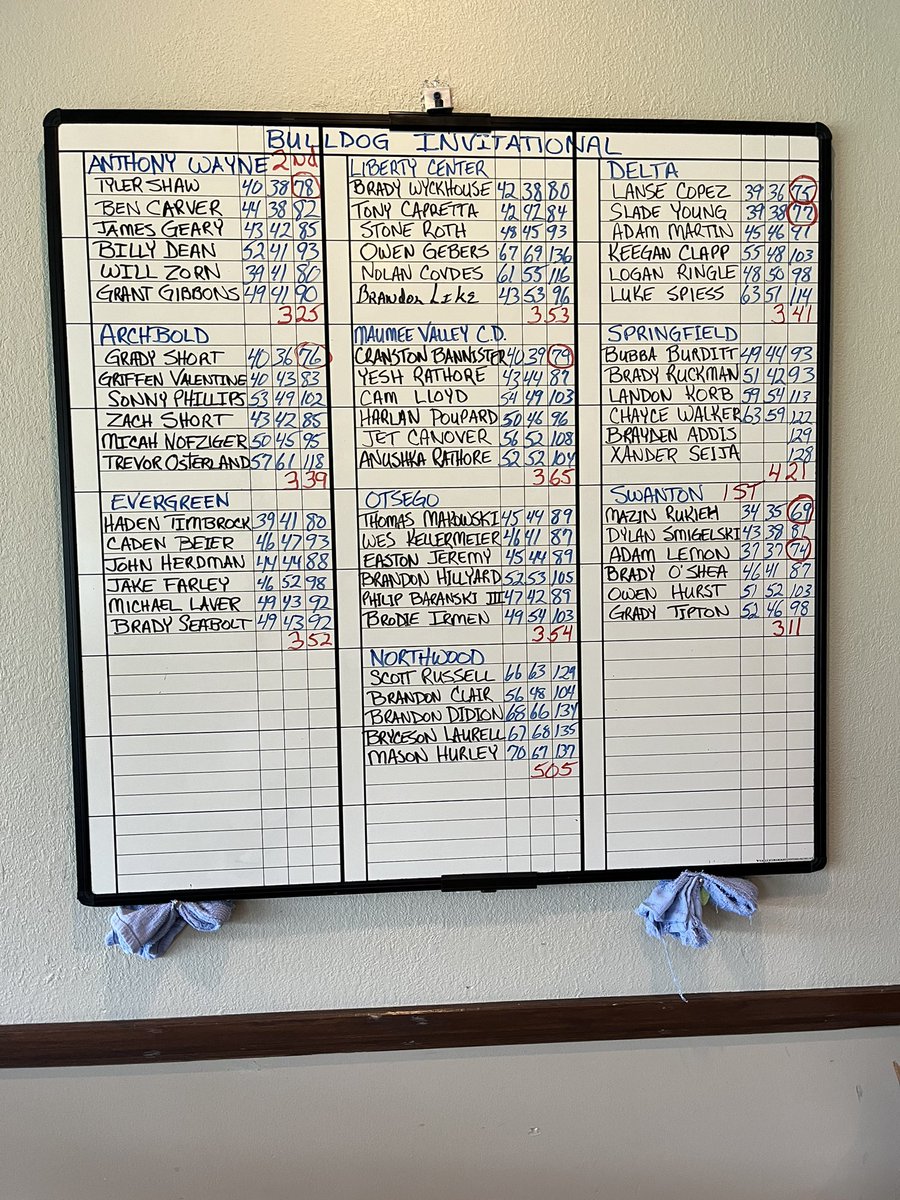 BULLDOG INVITATIONAL
ANTHONY WAYNE 2ND
TYLER SHAW 40 38 78
BEN CARVER 44 38 82
JAMES GEARY 43 42 85
BILLY DEAN 52 41 93
WILL ZORN 39 41 80
GRANT GIBBONS 49 41 90
325
ARCHBOLD
GRADY SHORT 40 36 76
GRIFFEN VALENTINE 40 43 83
SONNY PHILLIPS 53 49 102
ZACH SHORT 43 42 85
MICAH NOFZIGER 50 45 95
TREVOR OSTERLAND 57 61 118
339
EVERGREEN
HADEN TIMBROCK 39 41 80
CADEN BEIER 46 47 93
JOHN HERDMAN 44 44 88
JAKE FARLEY 46 52 98
MICHAEL LAVER 49 43 92
BRADY SEABOLT 49 43 92
352
LIBERTY CENTER
BRADY WYCKHOUSE 42 38 80
TONY CAPRETTA 42 42 84
STONE ROTH 48 45 93
OWEN GEBERS 67 69 136
NOLAN COVDES 61 55 116
BRANDON LIKE 43 53 96
353
MAUMEE VALLEY C.D.
CRANSTON BANNISTER 40 39 79
YESH RATHORE 43 44 87
CAM LLOYD 54 49 103
HARLAN POUPARD 50 46 96
JET CANOVER 56 52 108
ANUSHKA RATHORE 52 52 104
365
OTSEGO
THOMAS MAKOWSKI 45 44 89
WES KELLERMEIER 46 41 87
EASTON JEREMY 45 44 89
BRANDON HILLYARD 52 53 105
PHILIP BARANSKI III 47 42 89
BRODIE IRMEN 49 54 103
354
NORTHWOOD
SCOTT RUSSELL 66 63 129
BRANDON CLAIR 56 48 104
BRANDON DIDION 68 66 134
BRYCESON LAURELL 67 68 135
MASON HURLEY 70 67 137
505
DELTA
LANSE COPEZ 39 36 75
SLADE YOUNG 39 38 77
ADAM MARTIN 45 46 91
KEEGAN CLAPP 55 48 103
LOGAN RINGLE 48 50 98
LUKE SPIESS 63 51 114
341
SPRINGFIELD
BUBBA BURDITT 49 44 93
BRADY RUCKMAN 51 42 93
LANDON KORB 59 54 113
CHAYCE WALKER 63 59 122
BRAYDEN ADDIS 129
XANDER SEIJA 128
421
SWANTON 1ST
MAZIN RUKIEH 34 35 69
DYLAN SMIGELSKI 43 38 81
ADAM LEMON 37 37 74
BRADY O'SHEA 46 41 87
OWEN HURST 51 52 103
GRADY TIPTON 52 46 98
311